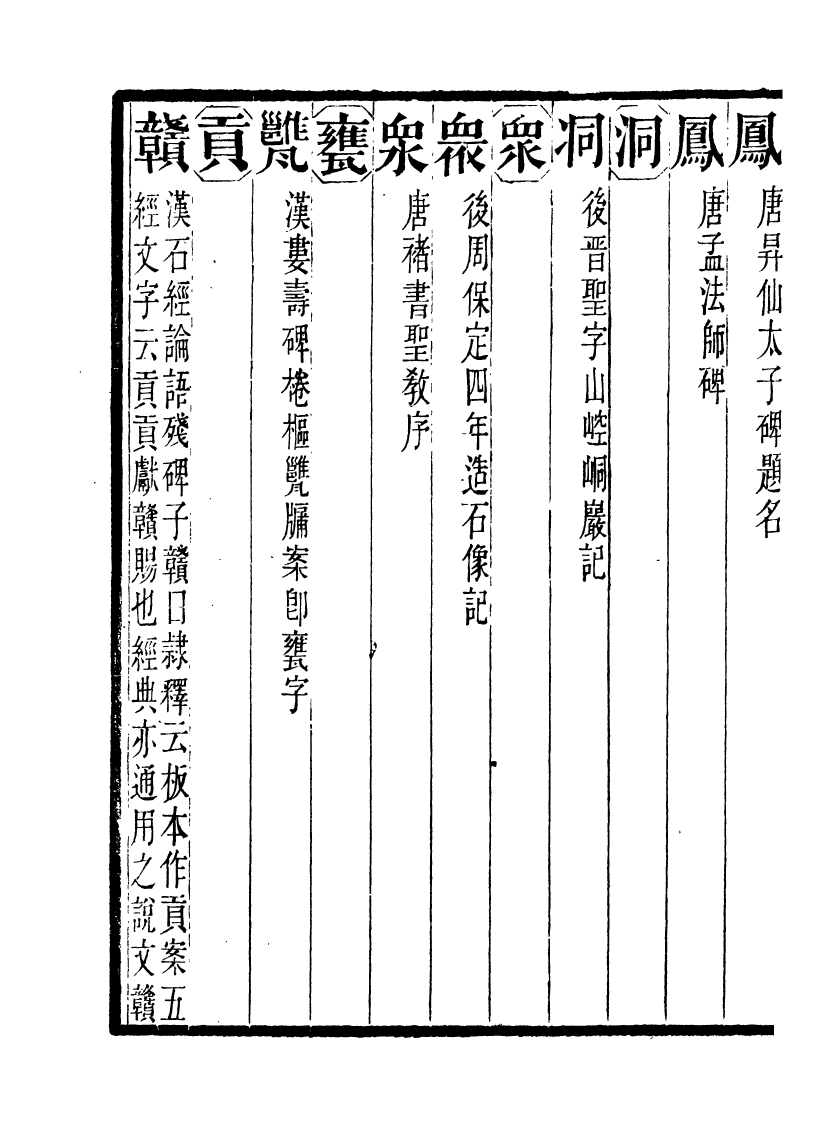 鳳 唐昇仙太子碑題名
鳳 唐孟法師碑
洞
㓊 後晉聖字山崆峒巖記
眾
衆 後周保定四年造石像記
衆 唐褚書聖教序
甕
甖 漢婁壽碑棬樞甖牖案卽甕字
貢
贛 漢石經論語殘碑子贛曰隷釋云板本作貢案五
經文字云貢貢獻贛賜也經典亦通用之說文贛